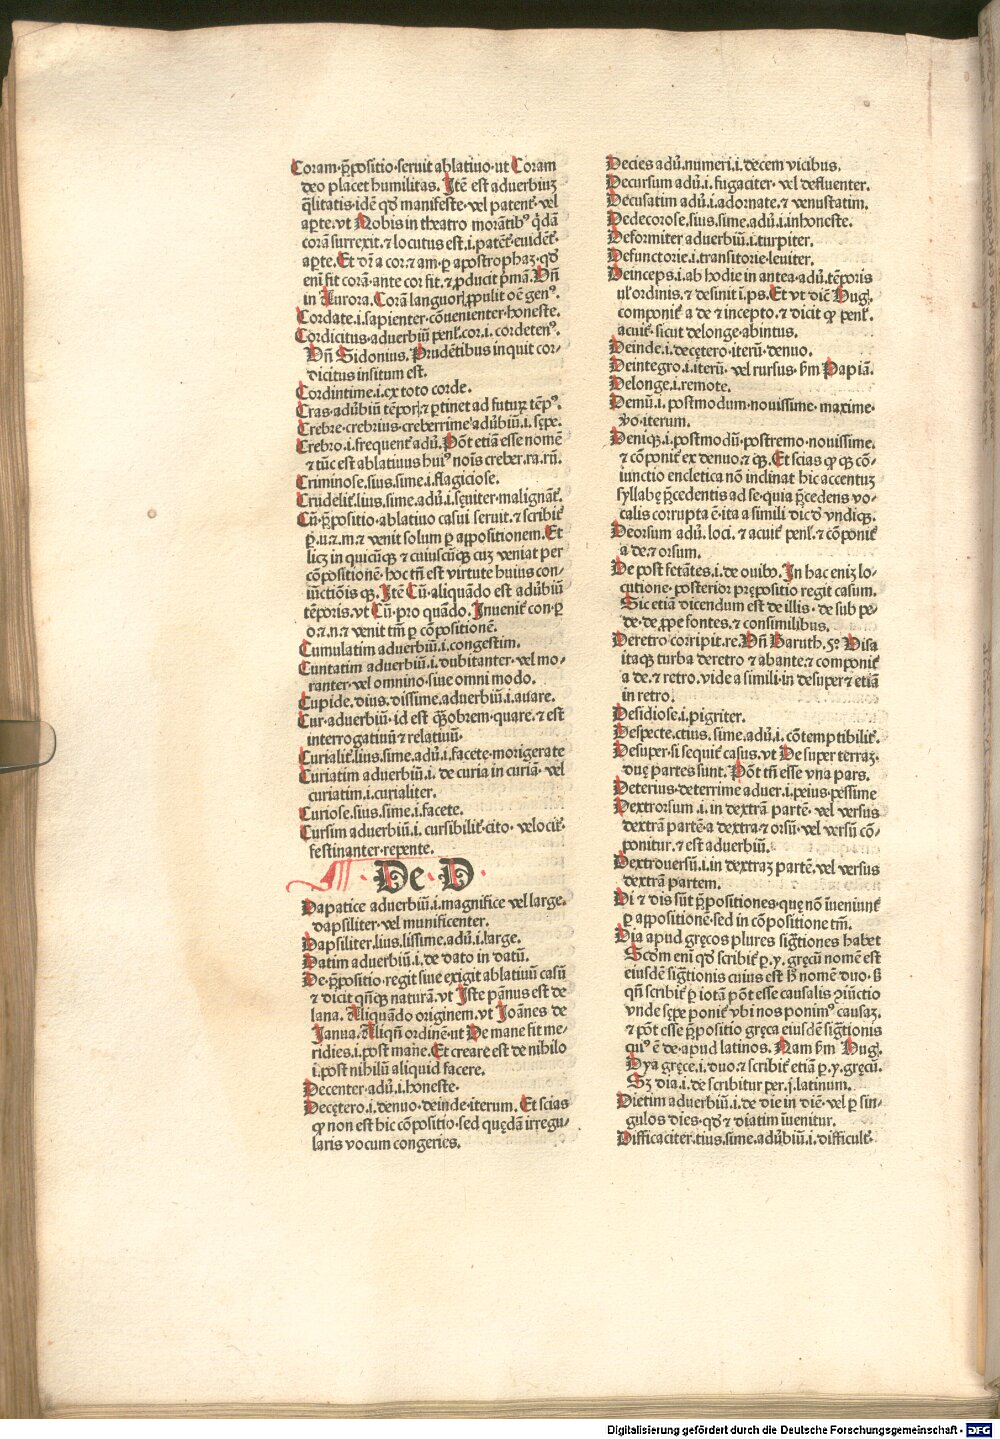 Coram·p̄positio·seruit ablatiuo·ut Coram
deo placet humilitas. Itē est adverbiuꝫ
q̄litatis·idē qđ manifeste·vel patent᷑·vel
aꝑte.vt Nobis in theatro morātibꝰ q̄dā
corā surrexit.⁊ locutus est.i.patēt᷑·euidēt᷑·
aꝑte. Et orī a cor.⁊ am·ꝑ apostrophaꝫ·qđ
eni fit corā·ante cor fit.⁊ ꝓducit pmā. Vn̄
in Aurora. Corā languor ꝓpulit oē genꝰ.
Cordate.i.sapienter·cōuenienter·honeste.
Cordicitus·aduerbiū penl̄.cor.i.cordetenꝰ.
Vn̄ Sidonius. Prudētibus inquit cor-
dicitus insitum est.
Cordintime.i.ex toto corde.
Cras·adūbiū tēpor⁊ ꝑtinet ad futuꝝ tēpꝰ.
Crebre·crebrius·creberrime adūbiū.i.sępe.
Crebro.i.frequent᷑ adū. Pōt etiā esse nomē
⁊ tūc est ablatiuus huiꝰ nōis creber.ra.rū.
Criminose.sius.sime.i.flagiciose.
Crudelit᷑.lius.sime.adū.i.sęuiter·malignāt᷑.
Cū·p̄positio·ablatiuo casui seruit.⁊ scribit᷑
ꝑ.u.⁊.m.⁊ venit solum ꝑ appositionem. Et
licꝫ in quicūqꝫ ⁊ cuiuscūqꝫ cuꝫ veniat per
cōpositionē·hoc tn̄ est virtute huius con-
iūctiōis qꝫ. Itē Cū·aliquādo est adūbiū
tēporis.vt Cū·pro quādo. Inuenit᷑ con·ꝑ
o.⁊.n.⁊ venit tm̄ ꝑ cōpositionē.
Cumulatim aduerbiū.i.congestim.
Cuntatim aduerbiū.i.dubitanter·vel mo-
ranter·vel omnino·siue omni modo.
Cupide.dius.dissime.aduerbiū.i.auare.
Cur·aduerbiū·id est qꝫobrem·quare.⁊ est
interrogatiuū ⁊ relatiuū·
Curialit᷑.lius.sime.adū.i.facete·morigerate
Curiatim aduerbiū.i. de curia in curiā· vel
curiatim.i.curialiter.
Curiose.sius.sime.i.facete.
Cursim aduerbiū.i. cursibilit᷑·cito· velocit᷑·
festinanter·repente.
De·D·
Dapatice aduerbiū.i.magnifice vel large·
dapsiliter·vel munificenter.
Dapsiliter.lius.lissime.adū.i.large.
Datim aduerbiū.i.de dato in datū.
De·p̄positio·regit siue exigit ablatiuū casū
⁊ dicit qn̄qꝫ naturā.vt Iste pānus est de
lana. Aliquādo originem.vt Joānes de
Janua. Aliqn̄ ordinē·ut De mane fit me-
ridies.i.post mane. Et creare est de nihilo
i.post nihilū aliquid facere.
Decenter·adū.i.honeste·
Decętero.i.denuo·deinde·iterum. Et scias
ꝙ non est hic cōpositio·sed quędā irregu-
laris vocum congeries.
Decies adū.numeri.i.decem vicibus.
Decursum adū.i.fugaciter· vel defluenter.
Decusatim adū.i.adornate.⁊ venustatim.
Dedecorose.sius.sime.adū.i.inhoneste.
Deformiter aduerbiū.i.turpiter.
Defunctorie.i.transitorie·leuiter.
Deinceps.i.ab hodie in antea·adū.tēporis
ul̓ ordinis.⁊ desinit ī.ps. Et vt dic̄ Hug̃.
componit᷑ a de ⁊ incepto.⁊ dicit ꝙ penl̄.
acuit᷑·sicut delonge·abintus.
Deinde.i.decętero·iterū·denuo.
Deintegro.i.iterū· vel rursus· ẜm Papiā.
Delonge.i.remote.
Demū.i. postmodum·nouissime· maxime·
ꝟo·iterum.
Deniqꝫ.i.postmodū·postremo·nouissime.
⁊ cōponit᷑ ex denuo.⁊ qꝫ. Et scias ꝙ qꝫ cō-
iunctio encletica nō inclinat hic accentuꝫ
syllabę p̄cedentis ad se·quia p̄cedens vo-
calis corrupta ē·ita a simili dicđ vndiqꝫ.
Deorsum adū. loci. ⁊ acuit᷑ penl̄.⁊ cōponit᷑
a de.⁊ orsum.
De post fetātes.i.de ouibꝰ. In hac eniꝫ lo-
cutione·posterior prępositio regit casum.
Sic etiā dicendum est de illis·de sub pe-
de·de ꝓpe fontes.⁊ consimilibus.
Deretro corripit.re. Vn̄ Baruth.5º Visa
itaqꝫ turba deretro ⁊ abante.⁊ componit᷑
a de.⁊ retro.vide a simili·in desuper ⁊ etiā
in retro.
Desidiose.i.pigriter.
Despecte.ctius.sime.adū.i.cōtemptibilit᷑.
Desuper·si sequit᷑ casus.vt De super terraꝫ·
duę partes sunt. Pōt tn̄ esse vna pars.
Deterius·deterrime aduer.i.peius·pessime
Dextrorsum .i. in dextrā partē· vel versus
dextrā partē·a dextra·⁊ orsū· vel versū cō-
ponitur.⁊ est aduerbiū.
Dextrouersū.i.in dextraꝫ partē.vel versus
dextrā partem.
Di ⁊ dis sūt p̄positiones·quę nō īueniunt᷑
ꝑ appositionē·sed in cōpositione tm̄.
Dia apud gręcos plures sig̃tiones habet
Scđm eni qđ scribit᷑ ꝑ.y.gręcū nomē est
eiusdē sig̃tionis cuius est ẜ nomē duo· ß
qn̄ scribit᷑ ꝑ iotā pōt esse causalis ꝯiūctio
vnde sępe ponit᷑ vbi nos ponimꝰ causaꝫ.
⁊ pōt esse p̄positio gręca eiusdē sig̃tionis
quiꝰ ē de·apud latinos. Nam ẜm Hug̃.
Dya gręce.i.duo.⁊ scribit᷑ etiā ꝑ.y.gręcū.
Sꝫ dia.i.de scribitur per.j.latinum.
Dietim aduerbiū.i.de die in diē·vel ꝑ sin-
gulos dies·qđ ⁊ diatim īuenitur.
Difficaciter.tius.sime.adūbiū.i.difficult᷑·
Digitalisierung gefördert durch die Deutsche Forschungsgemeinschaft - DFG